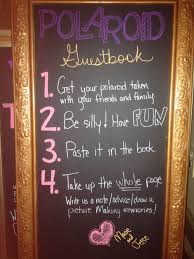 POLAROID
Guestbook
1. Get your polaroid taken
with your friends and family
2. Be silly! Have FUN
3. Paste it in the book
4. Take up the whole page
Write us a note/advice/draw a
picture Making memories!